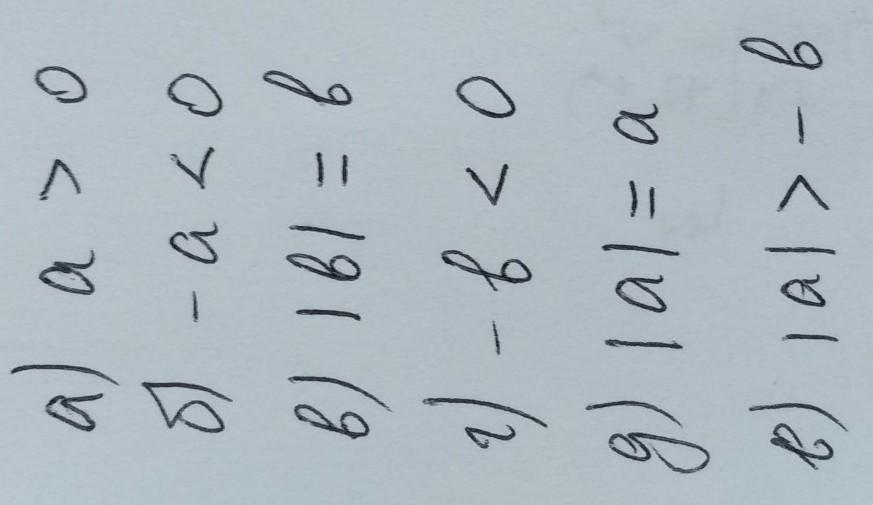 а) a > 0
б) -a < 0
в) |в| = в
г) -в < 0
д) |a| = a
е) |a| > -в